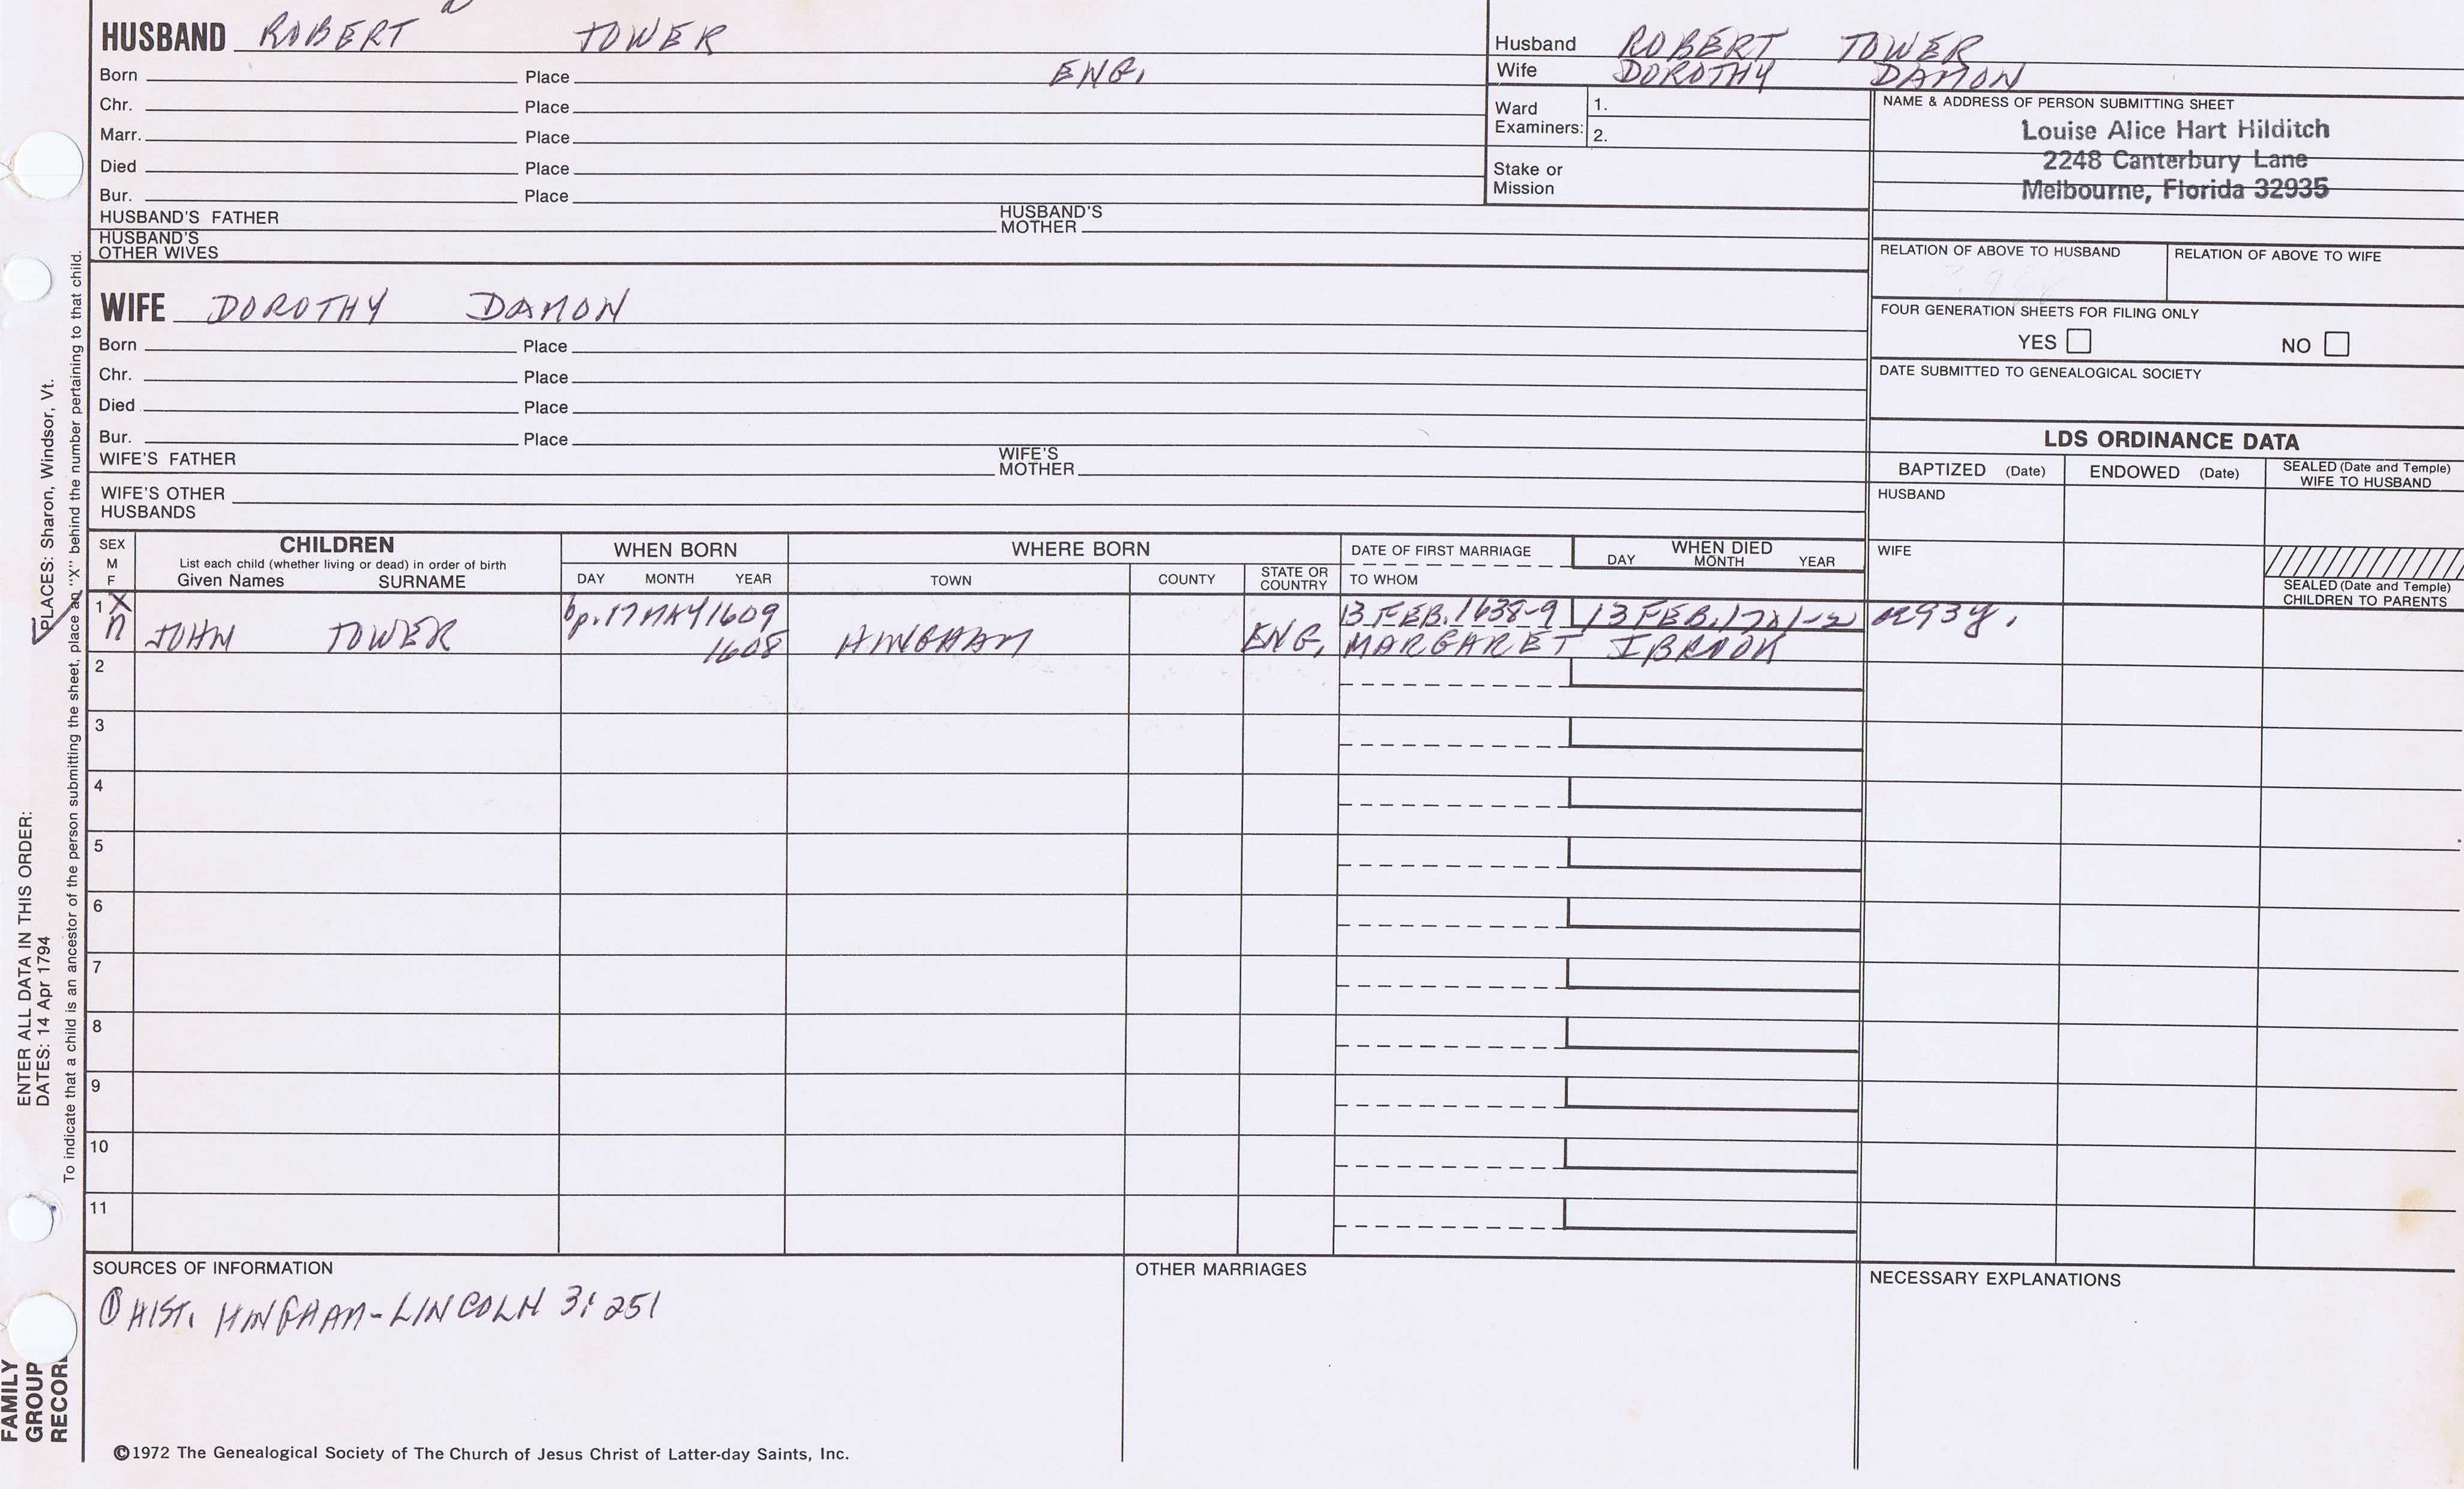 HUSBAND ROBERT TOWER
Born Place ENG.
Chr. Place
Marr. Place
Died Place
Bur. Place
HUSBAND'S FATHER HUSBAND'S MOTHER
HUSBAND'S OTHER WIVES
Husband ROBERT TOWER
Wife DOROTHY DAMON
Ward Examiners: 1.
2.
Stake or Mission
NAME & ADDRESS OF PERSON SUBMITTING SHEET
Louise Alice Hart Hilditch
2248 Canterbury Lane
Melbourne, Florida 32935
RELATION OF ABOVE TO HUSBAND RELATION OF ABOVE TO WIFE
FOUR GENERATION SHEETS FOR FILING ONLY
YES NO
DATE SUBMITTED TO GENEALOGICAL SOCIETY
WIFE DOROTHY DAMON
Born Place
Chr. Place
Died Place
Bur. Place
WIFE'S FATHER WIFE'S MOTHER
WIFE'S OTHER HUSBANDS
LDS ORDINANCE DATA
BAPTIZED (Date) ENDOWED (Date) SEALED (Date and Temple) WIFE TO HUSBAND
HUSBAND
WIFE
SEALED (Date and Temple) CHILDREN TO PARENTS
SEX M F
CHILDREN
List each child (whether living or dead) in order of birth
Given Names SURNAME
WHEN BORN
DAY MONTH YEAR
WHERE BORN
TOWN COUNTY STATE OR COUNTRY
DATE OF FIRST MARRIAGE
TO WHOM
WHEN DIED
DAY MONTH YEAR
1 X bp. 17 MAY 1609 13 FEB. 1638-9 13 FEB.
JOHN TOWER 1608 HINGHAM ENG. MARGARET IBROOK
2
3
4
5
6
7
8
9
10
11
SOURCES OF INFORMATION
① HIST. HINGHAM-LINCOLN 3:251
OTHER MARRIAGES
NECESSARY EXPLANATIONS
©1972 The Genealogical Society of The Church of Jesus Christ of Latter-day Saints, Inc.
FAMILY
GROUP
RECORD
ENTER ALL DATA IN THIS ORDER:
DATES: 14 Apr 1794 PLACES: Sharon, Windsor, Vt.
To indicate that a child is an ancestor of the person submitting the sheet, place an "X" behind the number pertaining to that child.